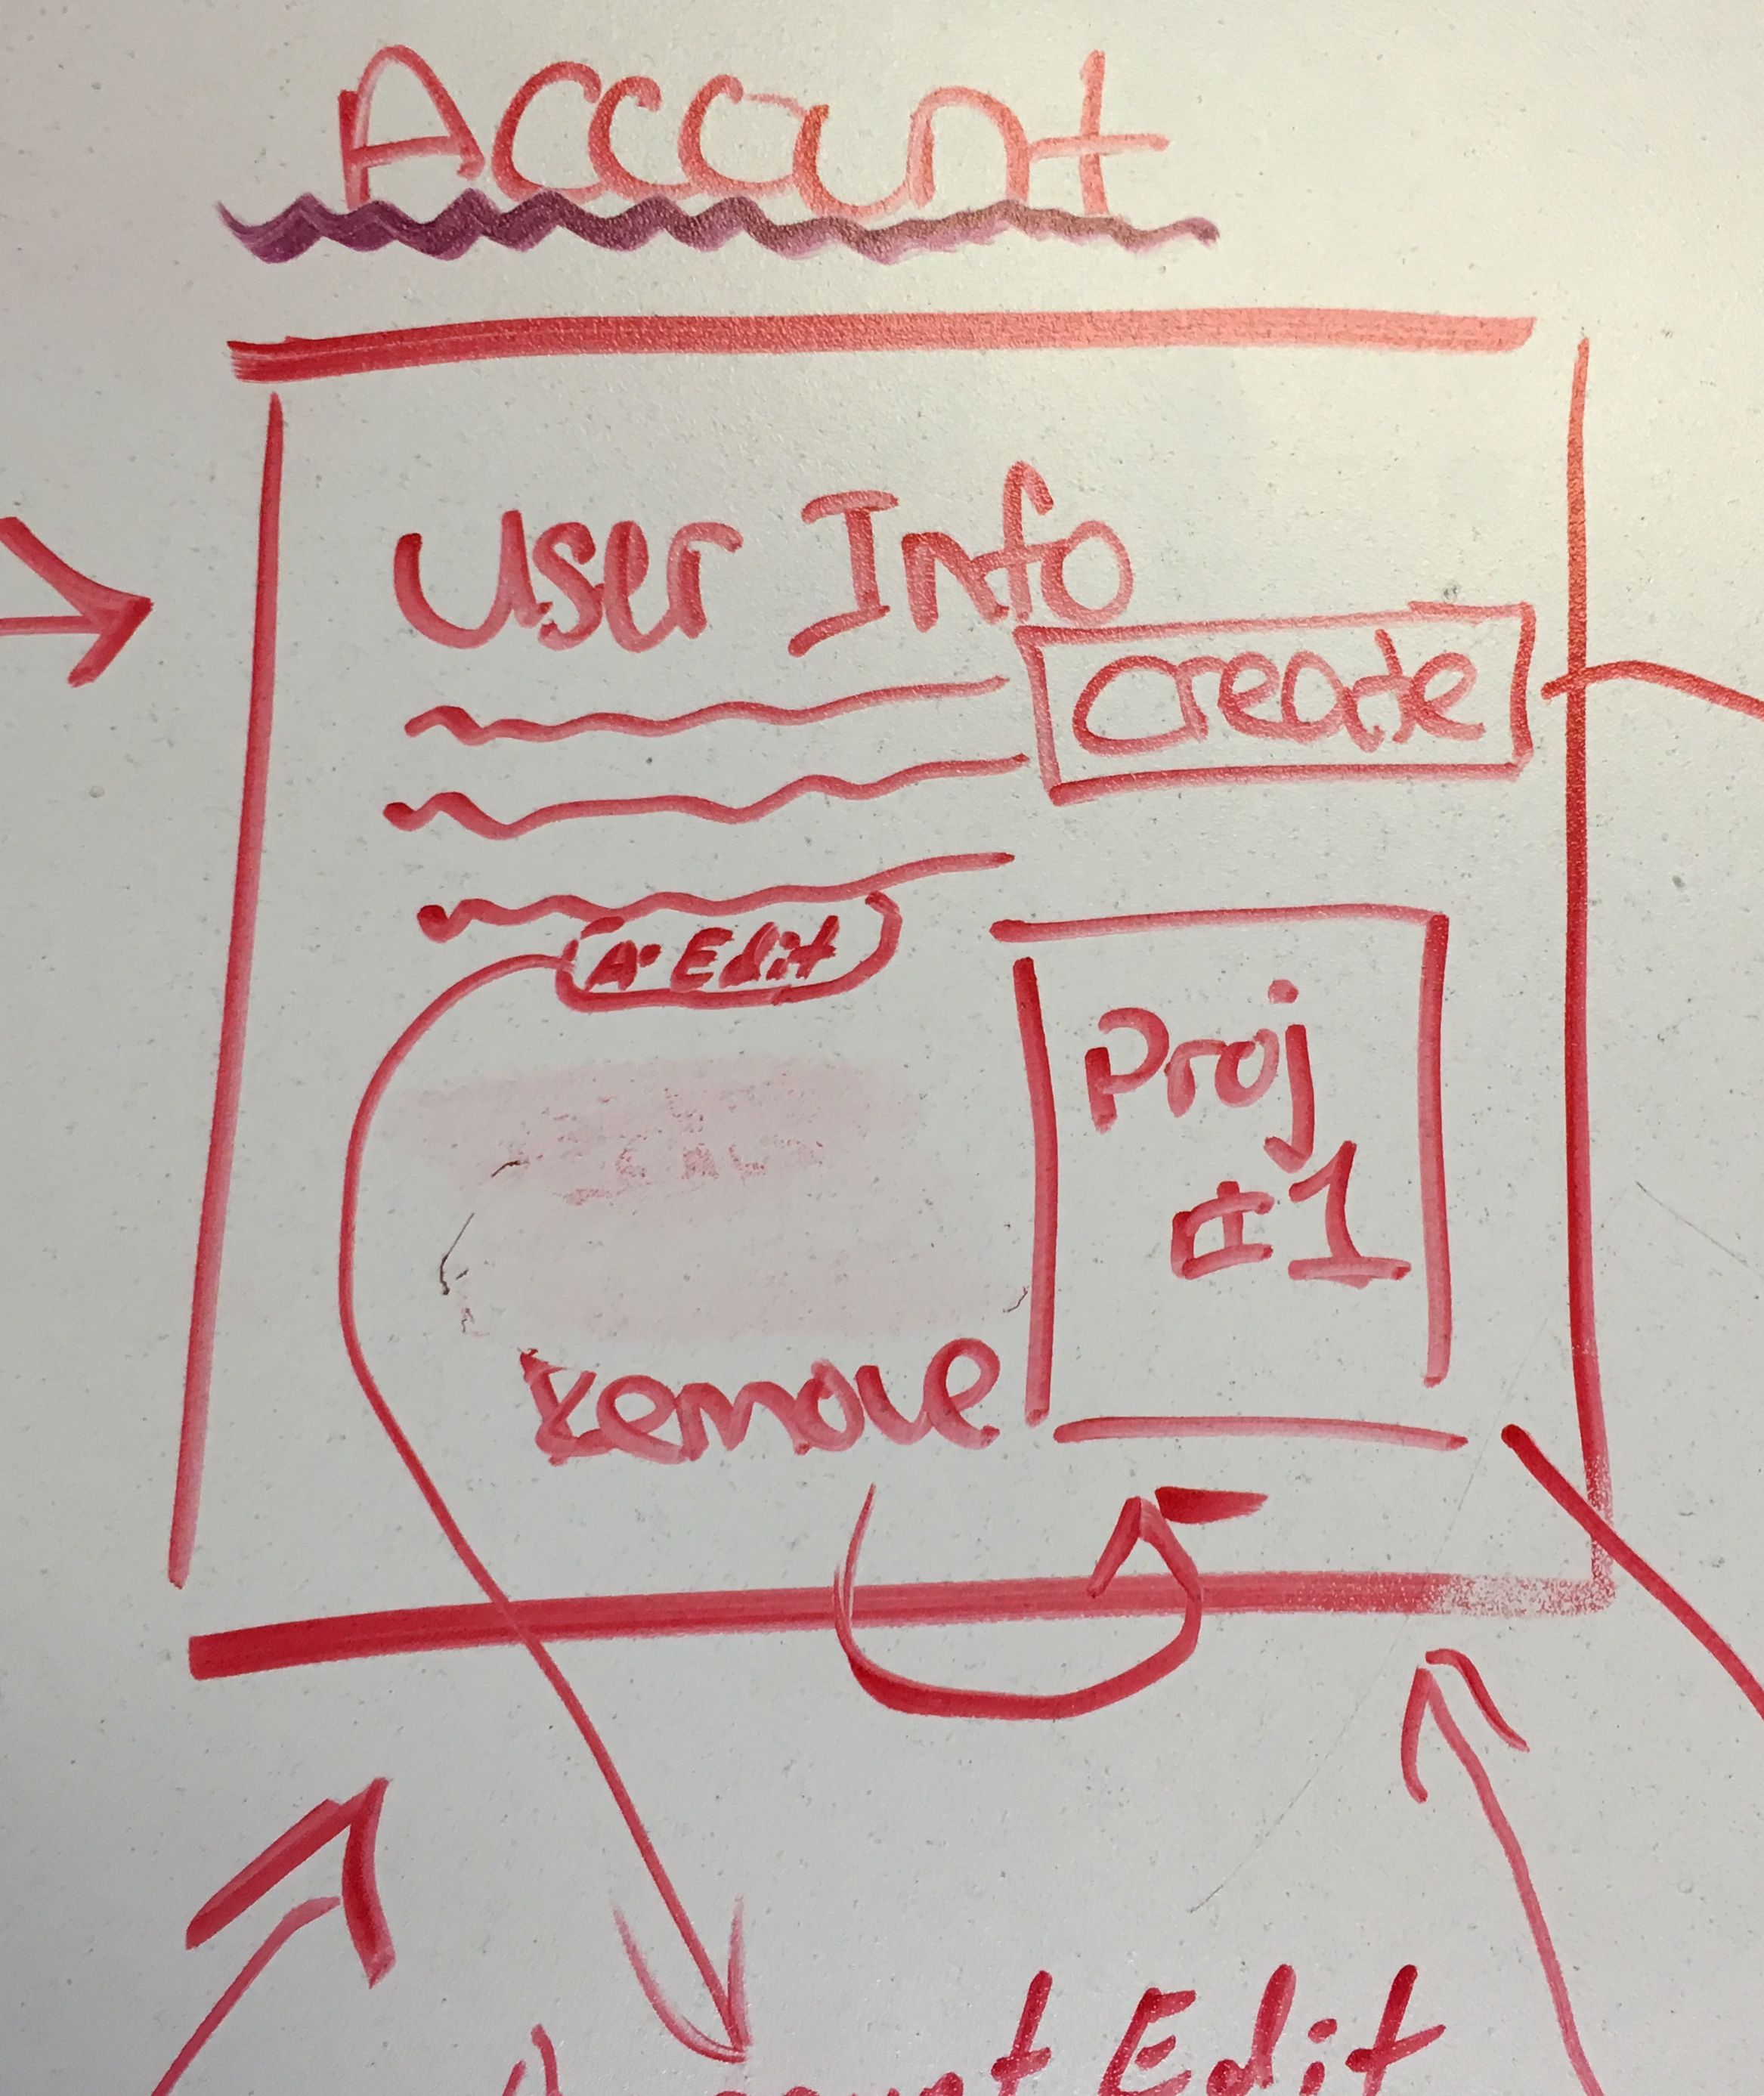 Account
User Info
Create
A. Edit
Proj
#1
Remove
Edit